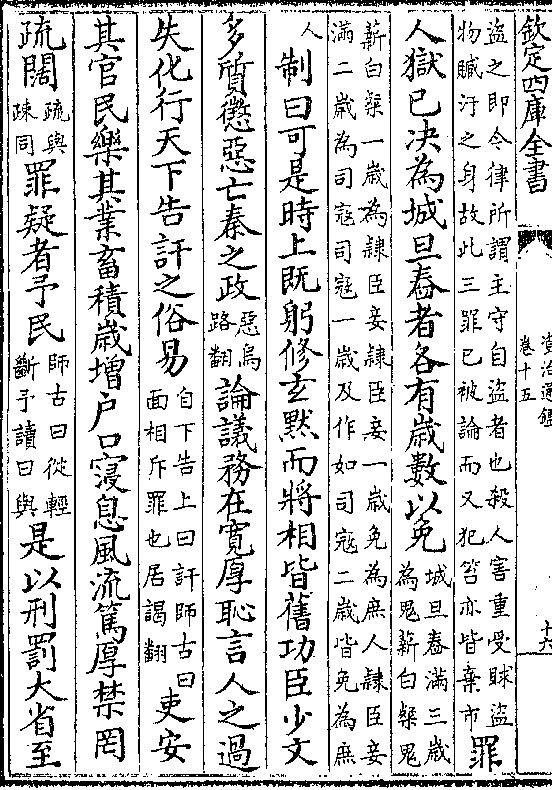 欽定四庫全書
資治通鑑
卷十五
十六
盜之即今律所謂主守自盜者也殺人害重受賕盜
物贓汙之身故此三罪已被論而又犯笞亦皆棄市
罪
人獄已决為城旦舂者各有歲數以免
城旦舂滿三歲
為鬼薪白粲鬼
薪白粲一歲為隸臣妾隸臣妾一歲免為庶人隸臣妾
滿二歲為司寇司寇一歲及作如司寇二歲皆免為庶
人
制曰可是時上既躬修玄黙而將相皆舊功臣少文
多質懲惡亡秦之政
惡烏
路翻
論議務在寛厚恥言人之過
失化行天下告訐之俗易
自下告上曰訐師古曰
面相斥罪也居謁翻
吏安
其官民樂其業畜積歲增户口寖息風流篤厚禁罔
疏闊
疏與
疎同
罪疑者予民
師古曰從輕
斷予讀曰與
是以刑罰大省至